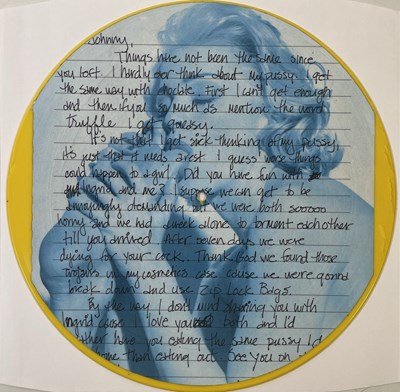 Johnny,
Things have not been the same since
you left. I hardly ever think about my pussy. I get
the same way with choclate. First I can't get enough
and then if you so much as mention the word
truffle I get queasy.
It's not that I get sick thinking of my pussy,
it's just that it needs a rest. I guess worse things
could happen to a girl. Did you have fun with
Ingrid and me? I suppose we can get to be
annoyingly demanding but we were both sooooo
horny and we had week alone to torment each other
till you arrived. After seven days we were
dying for your cock. Thank God we found those
trojans in my cosmetics case cause we were gonna
break down and use Zip Lock Bags.
By the way I don't mind sharing you with
Ingrid cause I love you both and I'd
rather have you eating the same pussy I'd
home than eating out. See you on